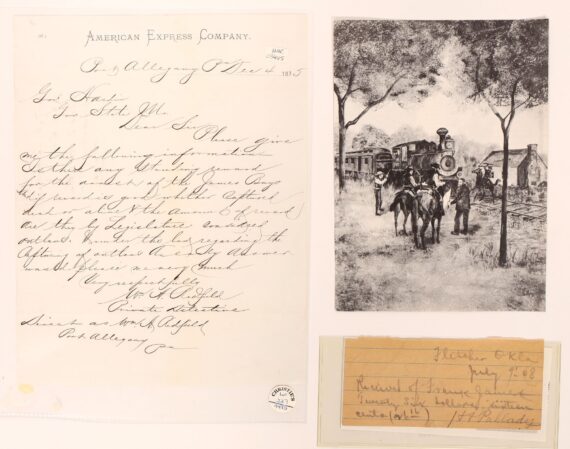 American Express Company.
Port Allegany Pa Dec 4 1875
Gov Hardin
Gov State Mo
Dear Sir
Please give
me the following information
Is ther any Standing reward
for the arrest of the James Boys
& if reward is good whether Captured
dead or alive & the Amount of reward
are they by Legislature outlawed
outlaws. Under the law regarding the
Capturing of outlaws An early Answer
would please me very much
Very respectfully
Wm A Redfield
Private Detective
Direct as Wm A Redfield
Port Allegany
Pa
CHRISTIE'S
Fletcher Okla
July 9th 08
Received of Frank James
Twenty Six dollars sixteen
cents